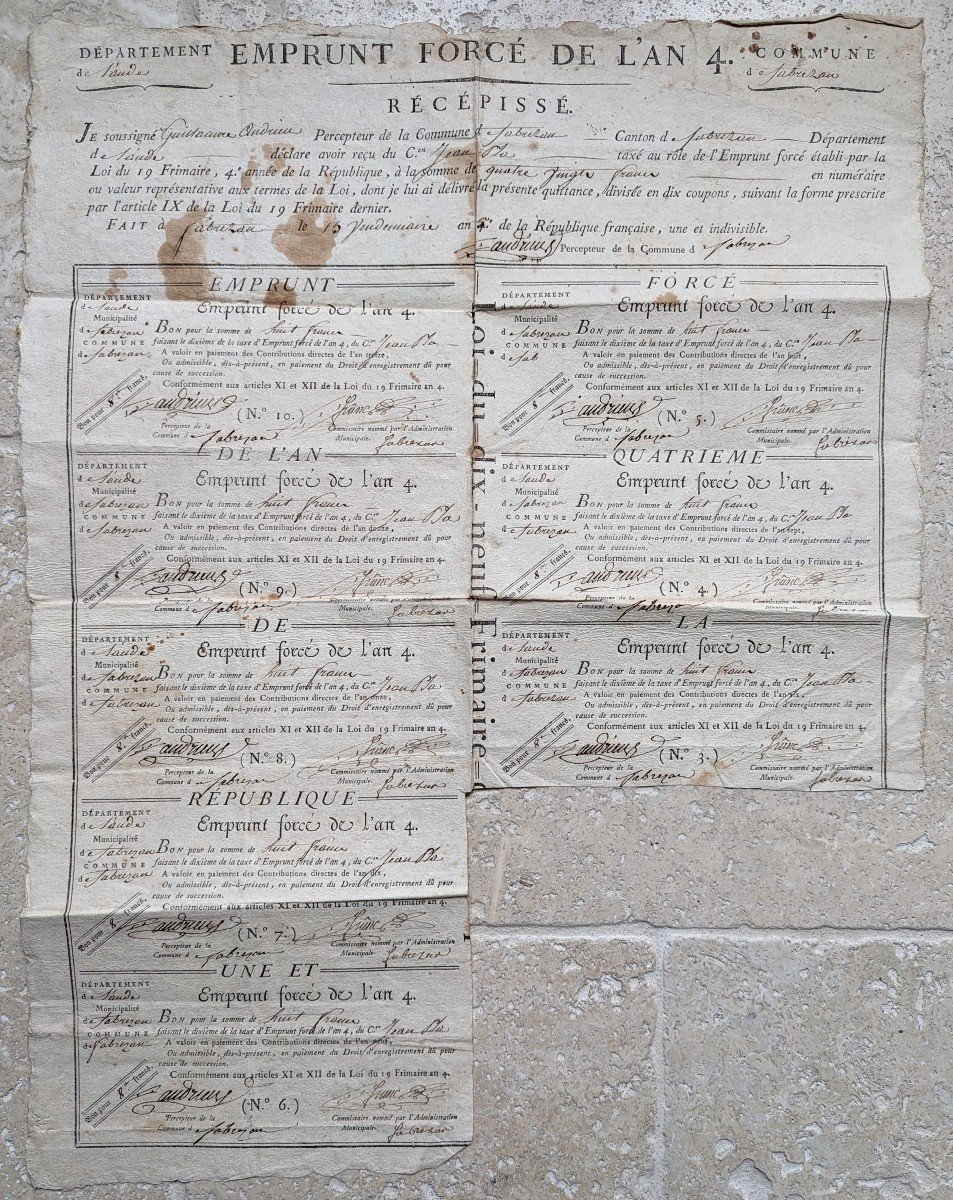 DÉPARTEMENT EMPRUNT FORCÉ DE L'AN 4. COMMUNE
de l'aude de fabrezan
RÉCÉPISSÉ.
JE soussigné Guillaume Andrieu Percepteur de la Commune d e fabrezan Canton d e fabrezan Département
d e l'aude déclare avoir reçu du C.en Jean Pla taxé au rôle de l'Emprunt forcé établi par la
Loi du 19 Frimaire, 4.e année de la République, à la somme de quatre vingts francs en numéraire
ou valeur représentative aux termes de la Loi, dont je lui ai délivré la présente quittance, divisée en dix coupons, suivant la forme prescrite
par l'article IX de la Loi du 19 Frimaire dernier.
FAIT à fabrezan le 15 vendemiaire an 4.e de la République française, une et indivisible.
andrieus Percepteur de la Commune d e fabrezan
Loi du dix-neuf Frimaire
EMPRUNT
DÉPARTEMENT
de l'aude
Municipalité
de fabrezan
COMMUNE
de fabrezan
Emprunt forcé de l'an 4.
BON pour la somme de huit francs
faisant le dixième de la taxe d'Emprunt forcé de l'an 4, du C.en Jean Pla
A valoir en paiement des Contributions directes de l'an treize,
Ou admissible, dès-à-présent, en paiement du Droit d'enregistrement dû pour
cause de succession.
Conformément aux articles XI et XII de la Loi du 19 Frimaire an 4.
Bon pour 8 francs.
andrieus (N.o 10.)
Percepteur de la
Commune d e fabrezan
Commissaire nommé par l'Administration
Municipale. fabrezan
FORCÉ
DÉPARTEMENT
de l'aude
Municipalité
de fabrezan
COMMUNE
de fab
Emprunt forcé de l'an 4.
BON pour la somme de huit francs
faisant le dixième de la taxe d'Emprunt forcé de l'an 4, du C.en Jean Pla
A valoir en paiement des Contributions directes de l'an huit,
Ou admissible, dès-à-présent, en paiement du Droit d'enregistrement dû pour
cause de succession.
Conformément aux articles XI et XII de la Loi du 19 Frimaire an 4.
Bon pour 8 francs.
andrieus (N.o 5.)
Percepteur de la
Commune d e fabrezan
Commissaire nommé par l'Administration
Municipale. fabrezan
DE L'AN
DÉPARTEMENT
de l'aude
Municipalité
de fabrezan
COMMUNE
de fabrezan
Emprunt forcé de l'an 4.
BON pour la somme de huit francs
faisant le dixième de la taxe d'Emprunt forcé de l'an 4, du C.en Jean Pla
A valoir en paiement des Contributions directes de l'an douze,
Ou admissible, dès-à-présent, en paiement du Droit d'enregistrement dû pour
cause de succession.
Conformément aux articles XI et XII de la Loi du 19 Frimaire an 4.
Bon pour 8 francs.
andrieus (N.o 9.)
Percepteur de la
Commune d e fabrezan
Commissaire nommé par l'Administration
Municipale. fabrezan
QUATRIEME
DÉPARTEMENT
de l'aude
Municipalité
de fabrezan
COMMUNE
de fabrezan
Emprunt forcé de l'an 4.
BON pour la somme de huit francs
faisant le dixième de la taxe d'Emprunt forcé de l'an 4, du C.en Jean Pla
A valoir en paiement des Contributions directes de l'an
Ou admissible, dès-à-présent, en paiement du Droit d'enregistrement dû pour
cause de succession.
Conformément aux articles XI et XII de la Loi du 19 Frimaire an 4.
Bon pour 8 francs.
andrieus (N.o 4.)
Percepteur de la
Commune d e fabrezan
Commissaire nommé par l'Administration
Municipale. fabrezan
DE
DÉPARTEMENT
de l'aude
Municipalité
de fabrezan
COMMUNE
de fabrezan
Emprunt forcé de l'an 4.
BON pour la somme de huit francs
faisant le dixième de la taxe d'Emprunt forcé de l'an 4, du C.en Jean Pla
A valoir en paiement des Contributions directes de l'an onze,
Ou admissible, dès-à-présent, en paiement du Droit d'enregistrement dû pour
cause de succession.
Conformément aux articles XI et XII de la Loi du 19 Frimaire an 4.
Bon pour 8 francs.
andrieus (N.o 8.)
Percepteur de la
Commune d e fabrezan
Commissaire nommé par l'Administration
Municipale. fabrezan
LA
DÉPARTEMENT
de l'aude
Municipalité
de fabrezan
COMMUNE
de fabrezan
Emprunt forcé de l'an 4.
BON pour la somme de huit francs
faisant le dixième de la taxe d'Emprunt forcé de l'an 4, du C.en Jean Pla
A valoir en paiement des Contributions directes de l'an six,
Ou admissible, dès-à-présent, en paiement du Droit d'enregistrement dû pour
cause de succession.
Conformément aux articles XI et XII de la Loi du 19 Frimaire an 4.
Bon pour 8 francs.
andrieus (N.o 3.)
Percepteur de la
Commune d e fabrezan
Commissaire nommé par l'Administration
Municipale. fabrezan
RÉPUBLIQUE
DÉPARTEMENT
de l'aude
Municipalité
de fabrezan
COMMUNE
de fabrezan
Emprunt forcé de l'an 4.
BON pour la somme de huit francs
faisant le dixième de la taxe d'Emprunt forcé de l'an 4, du C.en Jean Pla
A valoir en paiement des Contributions directes de l'an dix,
Ou admissible, dès-à-présent, en paiement du Droit d'enregistrement dû pour
cause de succession.
Conformément aux articles XI et XII de la Loi du 19 Frimaire an 4.
Bon pour 8 francs.
andrieus (N.o 7.)
Percepteur de la
Commune d e fabrezan
Commissaire nommé par l'Administration
Municipale. fabrezan
UNE ET
DÉPARTEMENT
de l'aude
Municipalité
de fabrezan
COMMUNE
de fabrezan
Emprunt forcé de l'an 4.
BON pour la somme de huit francs
faisant le dixième de la taxe d'Emprunt forcé de l'an 4, du C.en Jean Pla
A valoir en paiement des Contributions directes de l'an neuf,
Ou admissible, dès-à-présent, en paiement du Droit d'enregistrement dû pour
cause de succession.
Conformément aux articles XI et XII de la Loi du 19 Frimaire an 4.
Bon pour 8 francs.
andrieus (N.o 6.)
Percepteur de la
Commune d e fabrezan
Commissaire nommé par l'Administration
Municipale. fabrezan